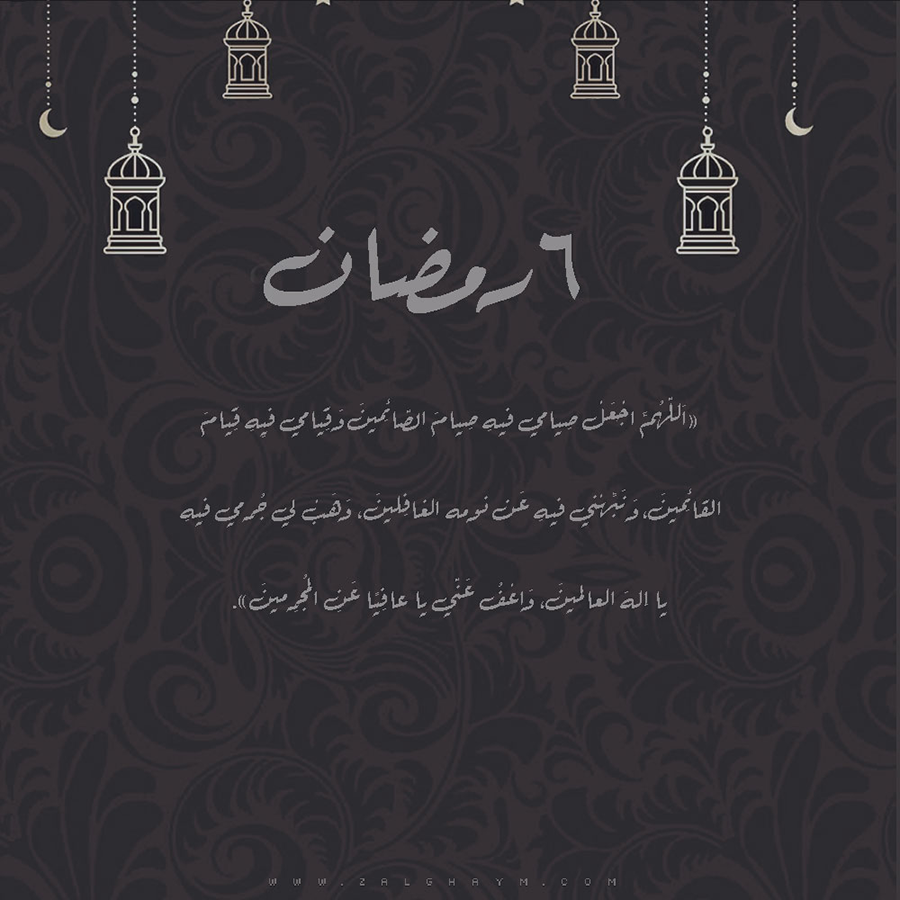 ٦ رمضان
«اَللّهُمَّ اجْعَلْ صِيامي فيهِ صِيامَ الصّائِمينَ وَقِيامي فيهِ قِيامَ
القائِمينَ، وَنَبِّهْني فيهِ عَن نَومه الغافِلينَ، وَهَبْ لي جُرمي فيهِ
يا اِلهَ العالَمينَ، وَاعْفُ عَنّي يا عافِيًا عَنِ الُمجرِمينَ».
WWW.ZALGHAYM.COM